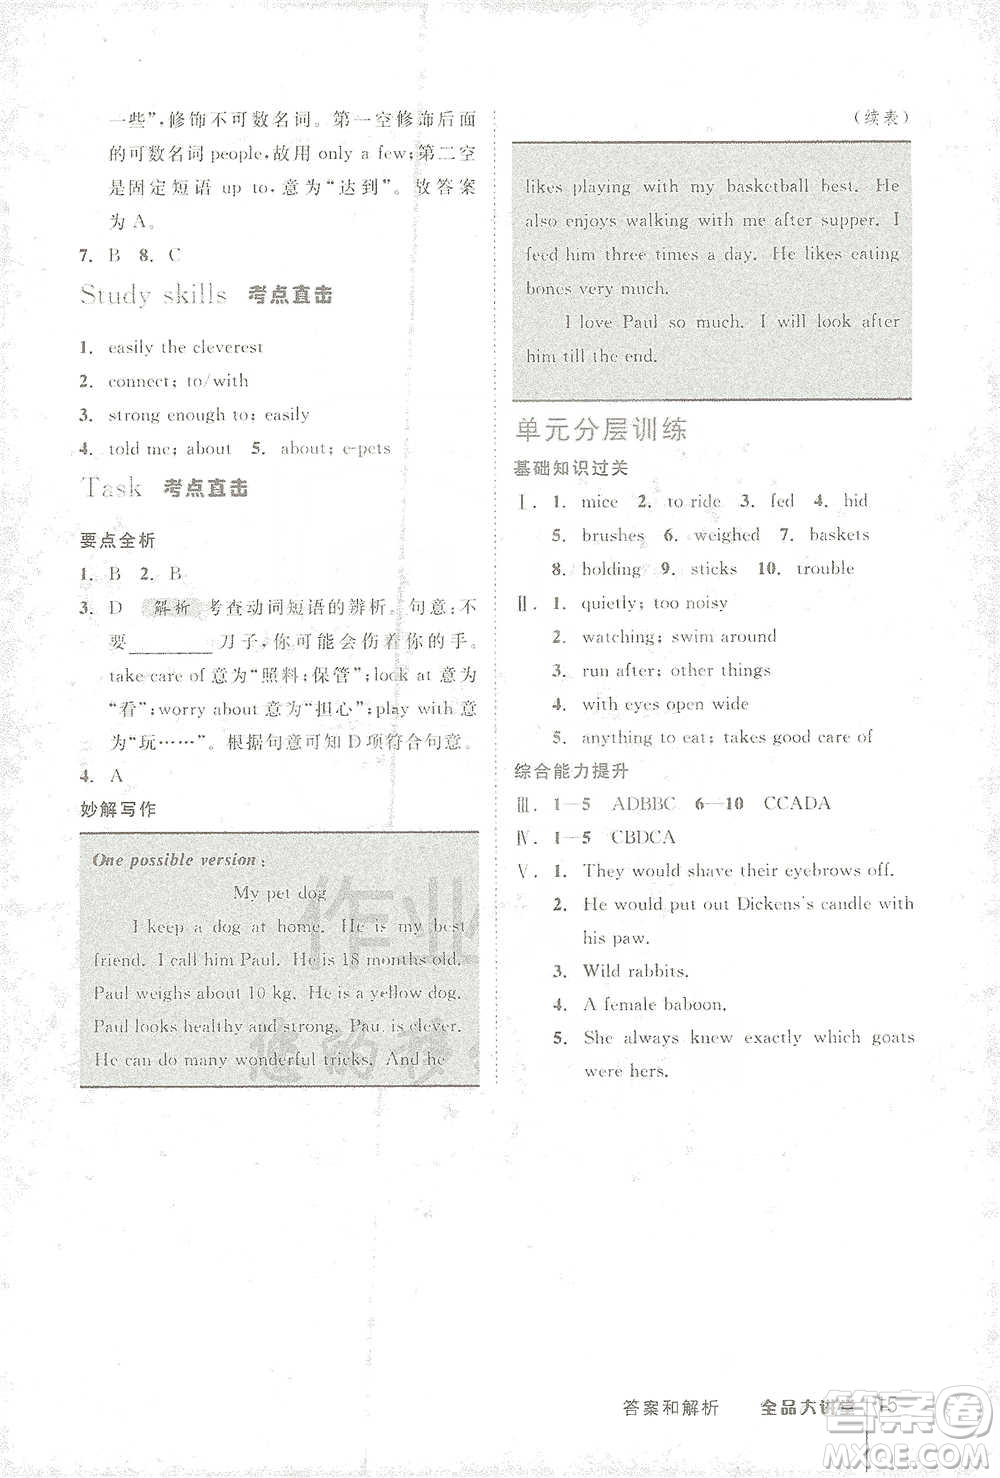 一些”,修饰不可数名词。第一空修饰后面
的可数名词 people,故用 only a few;第二空
是固定短语 up to,意为“达到”。故答案
为 A。
7. B 8. C
Study skills 考点直击
1. easily the cleverest
2. connect; to/with
3. strong enough to; easily
4. told me; about 5. about; e-pets
Task 考点直击
要点全析
1. B 2. B
3. D 解析 考查动词短语的辨析。句意:不
要________刀子,你可能会伤着你的手。
take care of 意为“照料;保管”;look at 意为
“看”;worry about 意为“担心”;play with 意
为“玩……”。根据句意可知 D 项符合句意。
4. A
妙解写作
One possible version:
My pet dog
I keep a dog at home. He is my best
friend. I call him Paul. He is 18 months old.
Paul weighs about 10 kg. He is a yellow dog.
Paul looks healthy and strong. Paul is clever.
He can do many wonderful tricks. And he
(续表)
likes playing with my basketball best. He
also enjoys walking with me after supper. I
feed him three times a day. He likes eating
bones very much.
I love Paul so much. I will look after
him till the end.
单元分层训练
基础知识过关
Ⅰ. 1. mice 2. to ride 3. fed 4. hid
5. brushes 6. weighed 7. baskets
8. holding 9. sticks 10. trouble
Ⅱ. 1. quietly; too noisy
2. watching; swim around
3. run after; other things
4. with eyes open wide
5. anything to eat; takes good care of
综合能力提升
Ⅲ. 1—5 ADBBC 6—10 CCADA
Ⅳ. 1—5 CBDCA
Ⅴ. 1. They would shave their eyebrows off.
2. He would put out Dickens's candle with
his paw.
3. Wild rabbits.
4. A female baboon.
5. She always knew exactly which goats
were hers.
答案和解析 全品大讲堂 15
答案圈
MXQE.COM